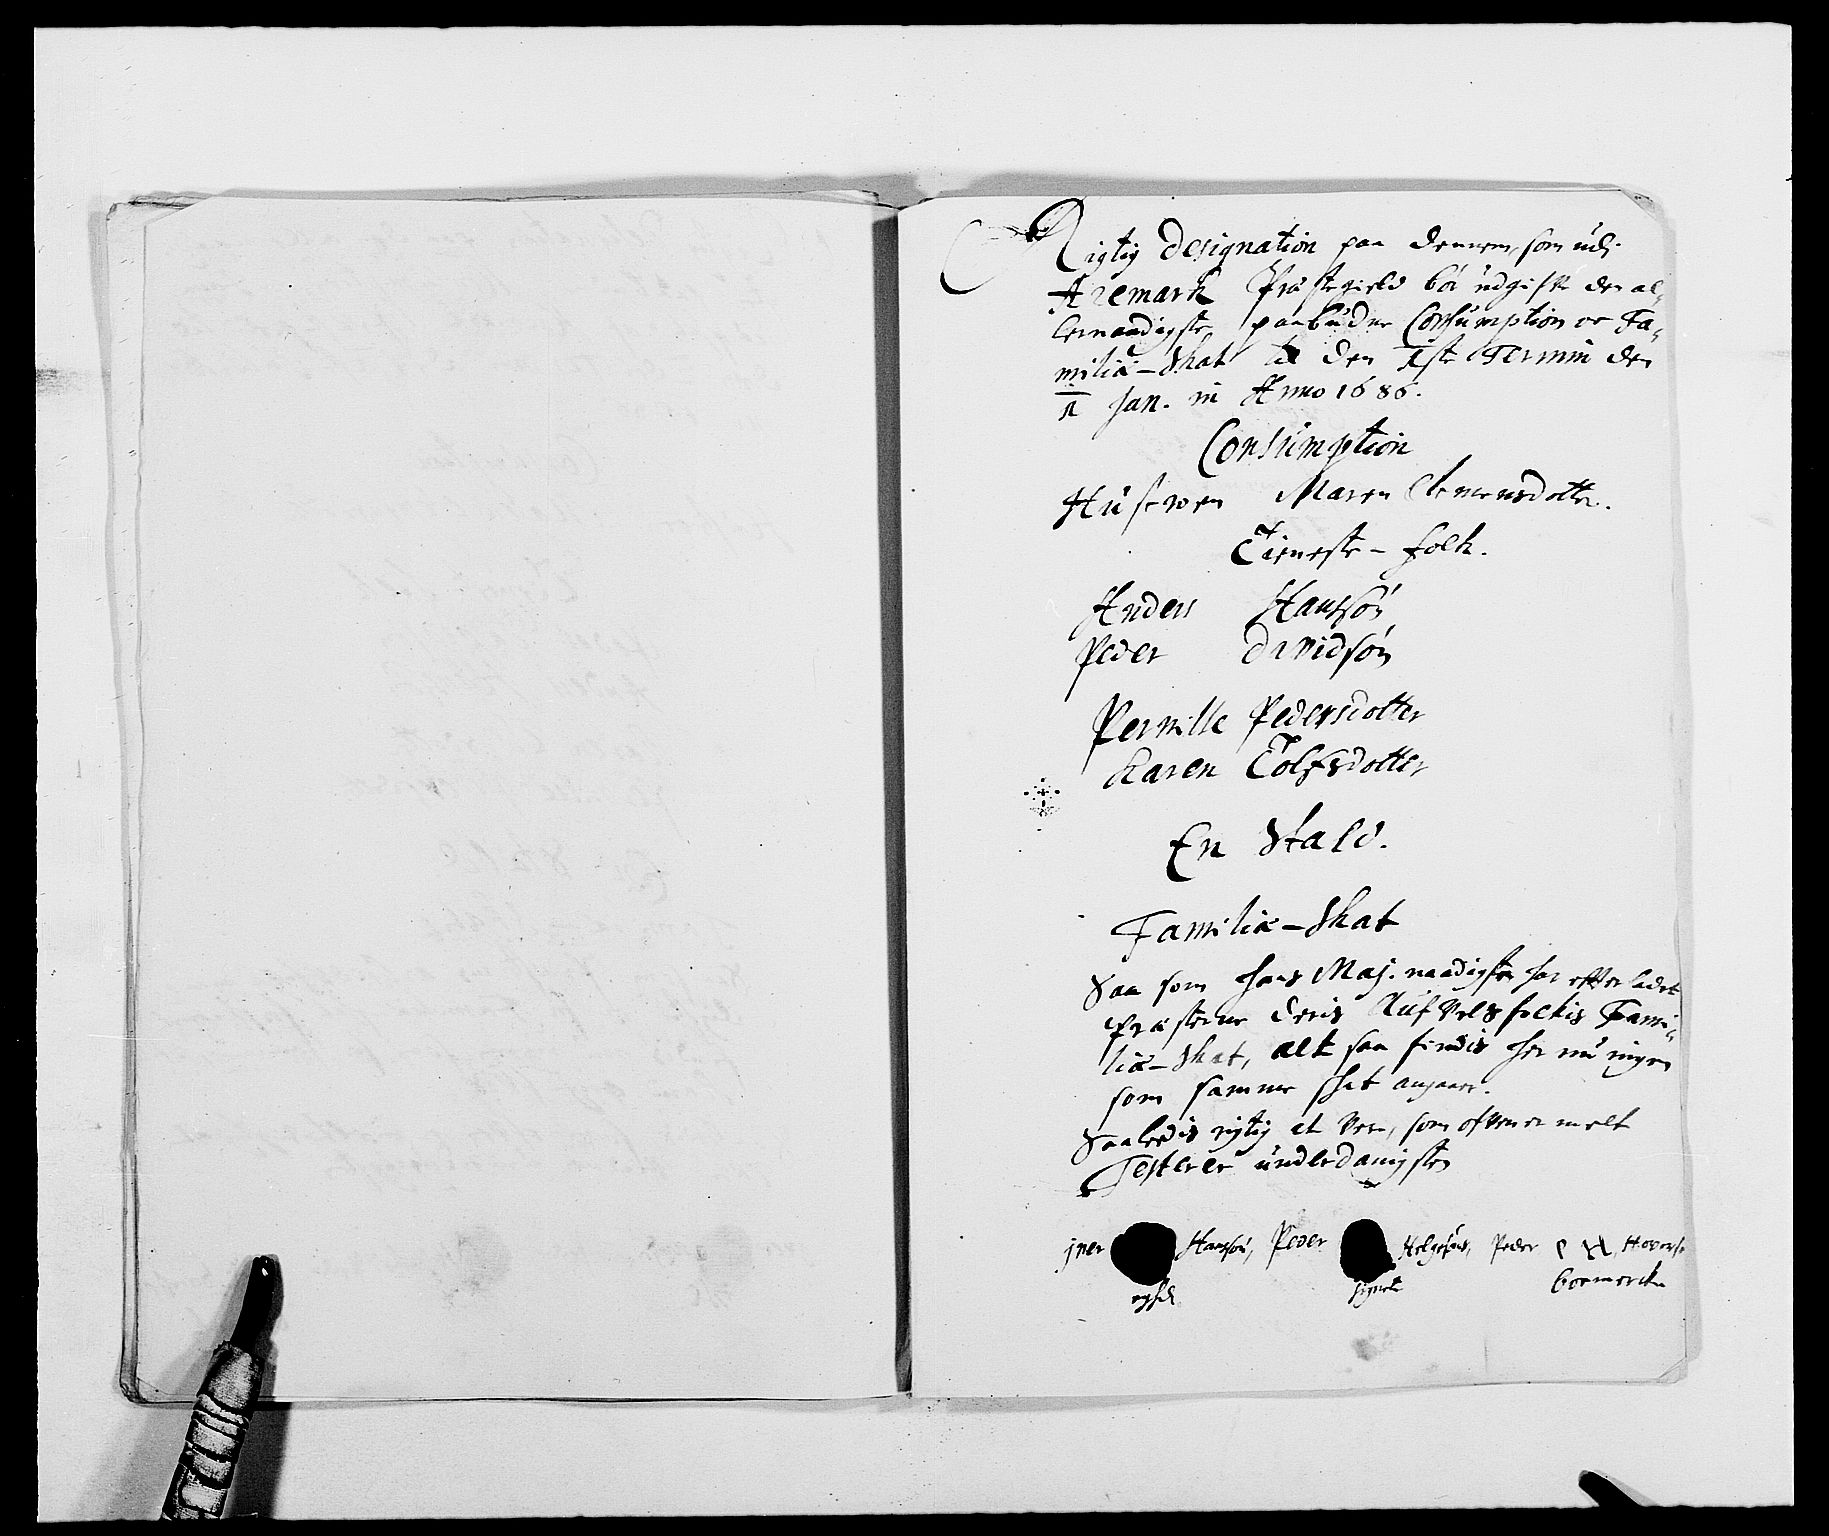 Rigtig Designation paa dennem, som udj
Aremark Præstegield bør udgifve den al-
lernaadigste paabudne Consumption oc Fa-
miliæ-Skat til den 1ste Termin den
1 Jan. in Anno 1686.
Consumption
Hustroen Maren Clemensdotter.
Tieneste-folk.
Anders Hanssøn
Peder Davidsøn
Pernille Pedersdotter
Karen Tolfsdotter
En Stald.
Familiæ-Skat
Saa som hans Maj. naadigst har efterladet
Præsterne deris Familiæ-
Skat, alt saa findis her nu ingen
som samme skat angaaer.
Saaledis rigtig at være, som ofven er melt
Testerer underdanigsten
Hanssøn, Peder Helgesøns, Peder
signete